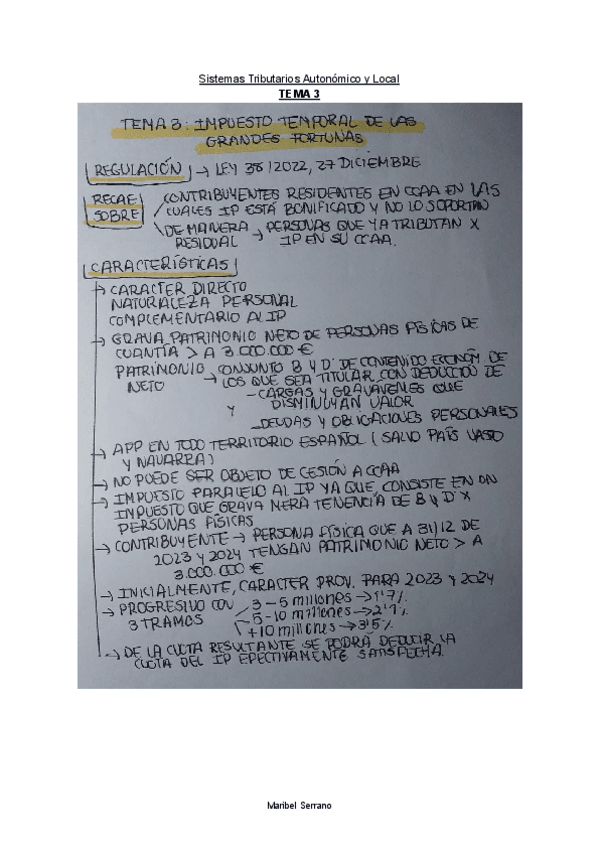 Sistemas Tributarios Autonómico y Local
TEMA 3
TEMA 3: IMPUESTO TEMPORAL DE LAS
GRANDES FORTUNAS
REGULACIÓN → LEY 38/2022, 27 DICIEMBRE
RECAE SOBRE
CONTRIBUYENTES RESIDENTES EN CCAA EN LAS
CUALES IP ESTÁ BONIFICADO Y NO LO SOPORTAN
DE MANERA RESIDUAL → PERSONAS QUE YA TRIBUTAN X
IP EN SU CCAA.
CARACTERÍSTICAS
→ CARACTER DIRECTO
NATURALEZA PERSONAL
COMPLEMENTARIO AL IP
→ GRAVA PATRIMONIO NETO DE PERSONAS FÍSICAS DE
CUANTÍA > A 3.000.000 €
PATRIMONIO NETO → CONJUNTO B Y D' DE CONTENIDO ECONÓM. DE
LOS QUE SEA TITULAR CON DEDUCCIÓN DE
- CARGAS Y GRAVÁMENES QUE
DISMINUYAN VALOR
Y
- DEUDAS Y OBLIGACIONES PERSONALES
→ APP EN TODO TERRITORIO ESPAÑOL (SALVO PAÍS VASCO
Y NAVARRA)
→ NO PUEDE SER OBJETO DE CESIÓN A CCAA
→ IMPUESTO PARALELO AL IP YA QUE CONSISTE EN UN
IMPUESTO QUE GRAVA MERA TENENCIA DE B Y D' X
PERSONAS FÍSICAS
→ CONTRIBUYENTE → PERSONA FÍSICA QUE A 31/12 DE
2023 Y 2024 TENGAN PATRIMONIO NETO > A
3.000.000 €
→ INICIALMENTE, CARACTER PROV. PARA 2023 Y 2024
→ PROGRESIVO CON 3 TRAMOS
3 - 5 millones → 1'7%
5 - 10 millones → 2'1%
+ 10 millones → 3'5%
→ DE LA CUOTA RESULTANTE SE PODRÁ DEDUCIR LA
CUOTA DEL IP EFECTIVAMENTE SATISFECHA.
Maribel Serrano